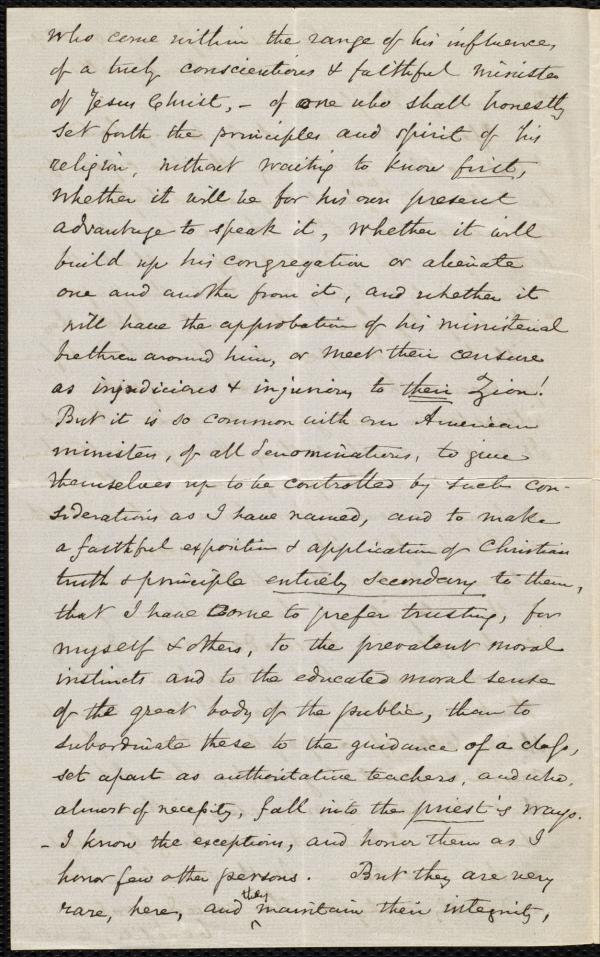 who come within the range of his influence,
of a truly conscientious & faithful minister
of Jesus Christ, – of one who shall honestly
set forth the principles and spirit of his
religion, without waiting to know first,
whether it will be for his own present
advantage to speak it, whether it will
build up his congregation or alienate
one and another from it, and whether it
will have the approbation of his ministerial
brethren around him, or meet their censure
as injudicious & injurious to their Zion!
But it is so common with our American
ministers, of all denominations, to give
themselves up to be controlled by such con-
siderations as I have named, and to make
a faithful exposition & application of Christian
truth & principle entirely secondary to them,
that I have come to prefer trusting, for
myself & others, to the prevalent moral
instincts and to the educated moral sense
of the great body of the public, than to
subordinate these to the guidance of a class,
set apart as authoritative teachers, and who,
almost of necessity, fall into the priest's ways.
– I know the exceptions, and honor them as I
honor few other persons. But they are very
rare, here, and they maintain their integrity,